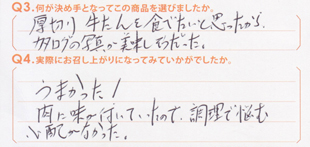 Q3.何が決め手となってこの商品を選びましたか。
厚切り牛たんを食べたいと思ったから
カタログの写真が美味しそうだった。
Q4.実際にお召し上がりになってみていかがでしたか。
うまかった!
肉に味が付いていたので、調理で悩む
心配がなかった。